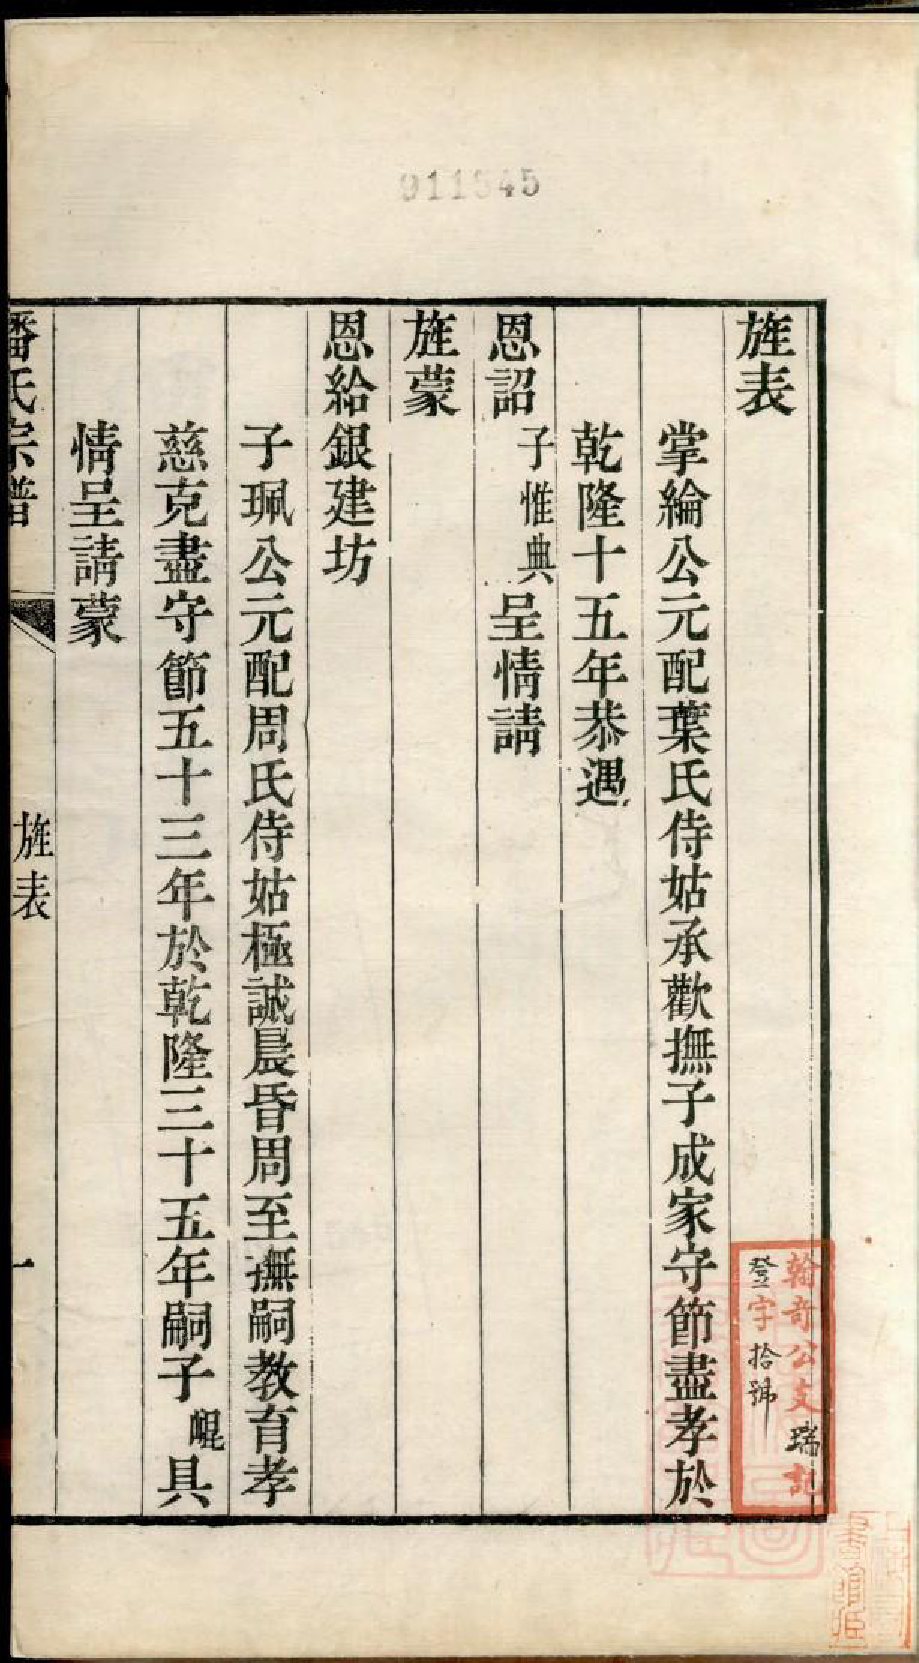 911545
旌表
掌綸公元配葉氏侍姑承歡撫子成家守節盡孝於
乾隆十五年恭遇
恩詔子惟典呈情請
旌蒙
恩給銀建坊
子珮公元配周氏侍姑極誠晨昏周至撫嗣教育孝
慈克盡守節五十三年於乾隆三十五年嗣子崐具
情呈請蒙
潘氏宗譜 旌表 一
翰奇公支瑞記
登字拾號